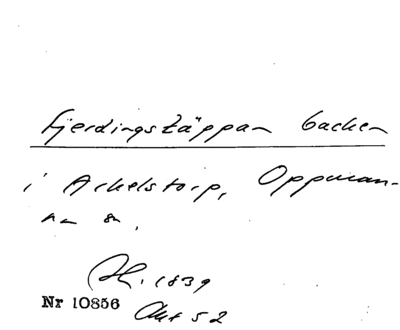 Fjerdingstäppan backen
i Arkelstorp, Oppman-
na sn.
Lt. 1839
Nr 10856 Akt 52